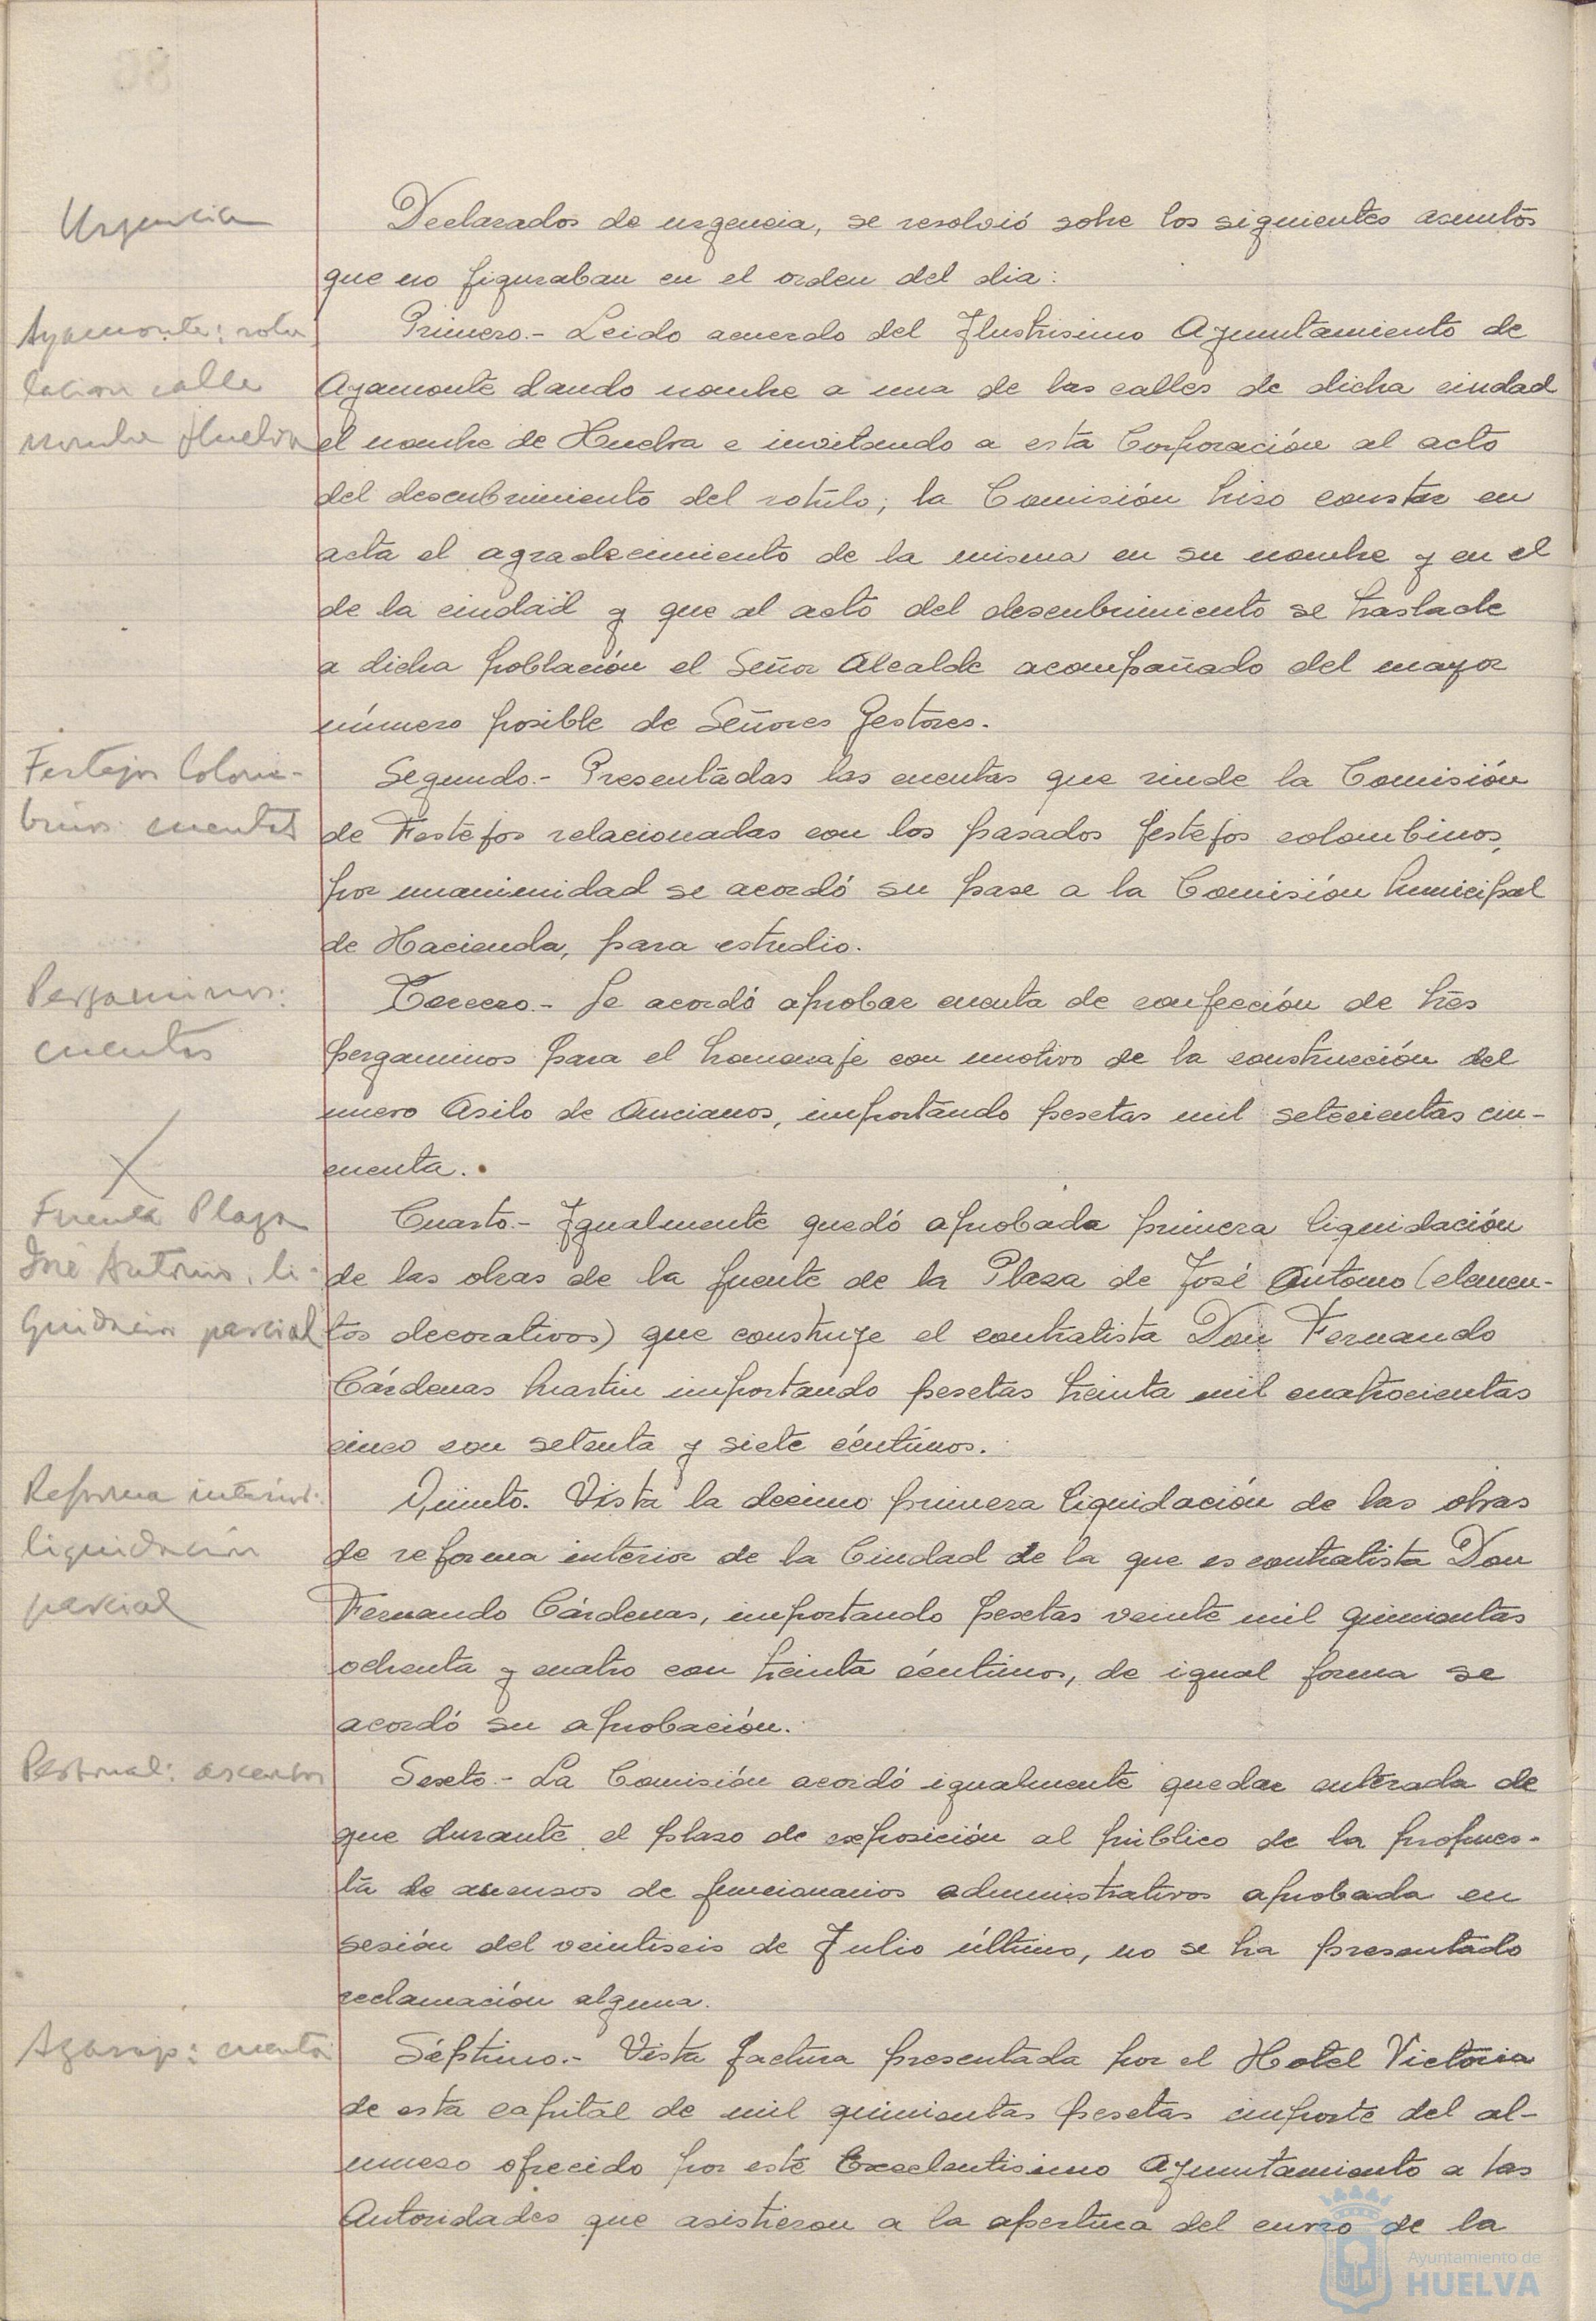 Urgencia
Declarados de urgencia, se resolvió sobre los siguientes asuntos
que no figuraban en el orden del dia:
Ayamonte: rotu
lacion calle
nombre Huelva
Primero.- Leido acuerdo del Ilustrisimo Ayuntamiento de
Ayamonte dando nombre a una de las calles de dicha ciudad
el nombre de Huelva e invitando a esta Corporación al acto
del descubrimiento del rotulo; la Comisión hiso constar en
acta el agradecimiento de la misma en su nombre y en el
de la ciudad y que al acto del descubrimiento se traslade
a dicha población el Señor Alcalde acompañado del mayor
número posible de Señores Gestores.
Festejos Colom-
binos: cuentas
Segundo.- Presentadas las cuentas que rinde la Comisión
de Festejos relacionadas con los pasados festejos colombinos,
por unanimidad se acordó su pase a la Comisión Municipal
de Hacienda, para estudio.
Pergaminos:
cuentas
Tercero.- Se acordó aprobar cuenta de confección de tres
pergaminos para el homenaje con motivo de la construcción del
nuevo Asilo de Ancianos, importando pesetas mil setecientas cin-
cuenta.
Fuente Plaza
José Antonio, li-
quidacion parcial
Cuarto.- Igualmente quedó aprobada primera liquidación
de las obras de la fuente de la Plaza de José Antonio (elemen-
tos decorativos) que construye el contratista Don Fernando
Cárdenas Martin importando pesetas treinta mil cuatrocientas
cinco con setenta y siete céntimos.
Reforma interior:
liquidación
parcial
Quinto. Vista la decimo primera liquidación de las obras
de reforma interior de la Ciudad de la que es contratista Don
Fernando Cárdenas, importando pesetas veinte mil quinientas
ochenta y cuatro con treinta céntimos, de igual forma se
acordó su aprobación.
Personal: ascensos
Sexto.- La Comisión acordó igualmente quedar enterada de
que durante el plazo de exposición al público de la propues-
ta de ascensos de funcionarios administrativos aprobada en
sesión del veintiseis de Julio último, no se ha presentado
reclamación alguna.
Agasajo: cuenta
Séptimo.- Vista factura presentada por el Hotel Victoria
de esta capital de mil quinientas pesetas importe del al-
muerzo ofrecido por este Excelentisimo Ayuntamiento a las
Autoridades que asistieron a la apertura del curso de la
Ayuntamiento de
HUELVA